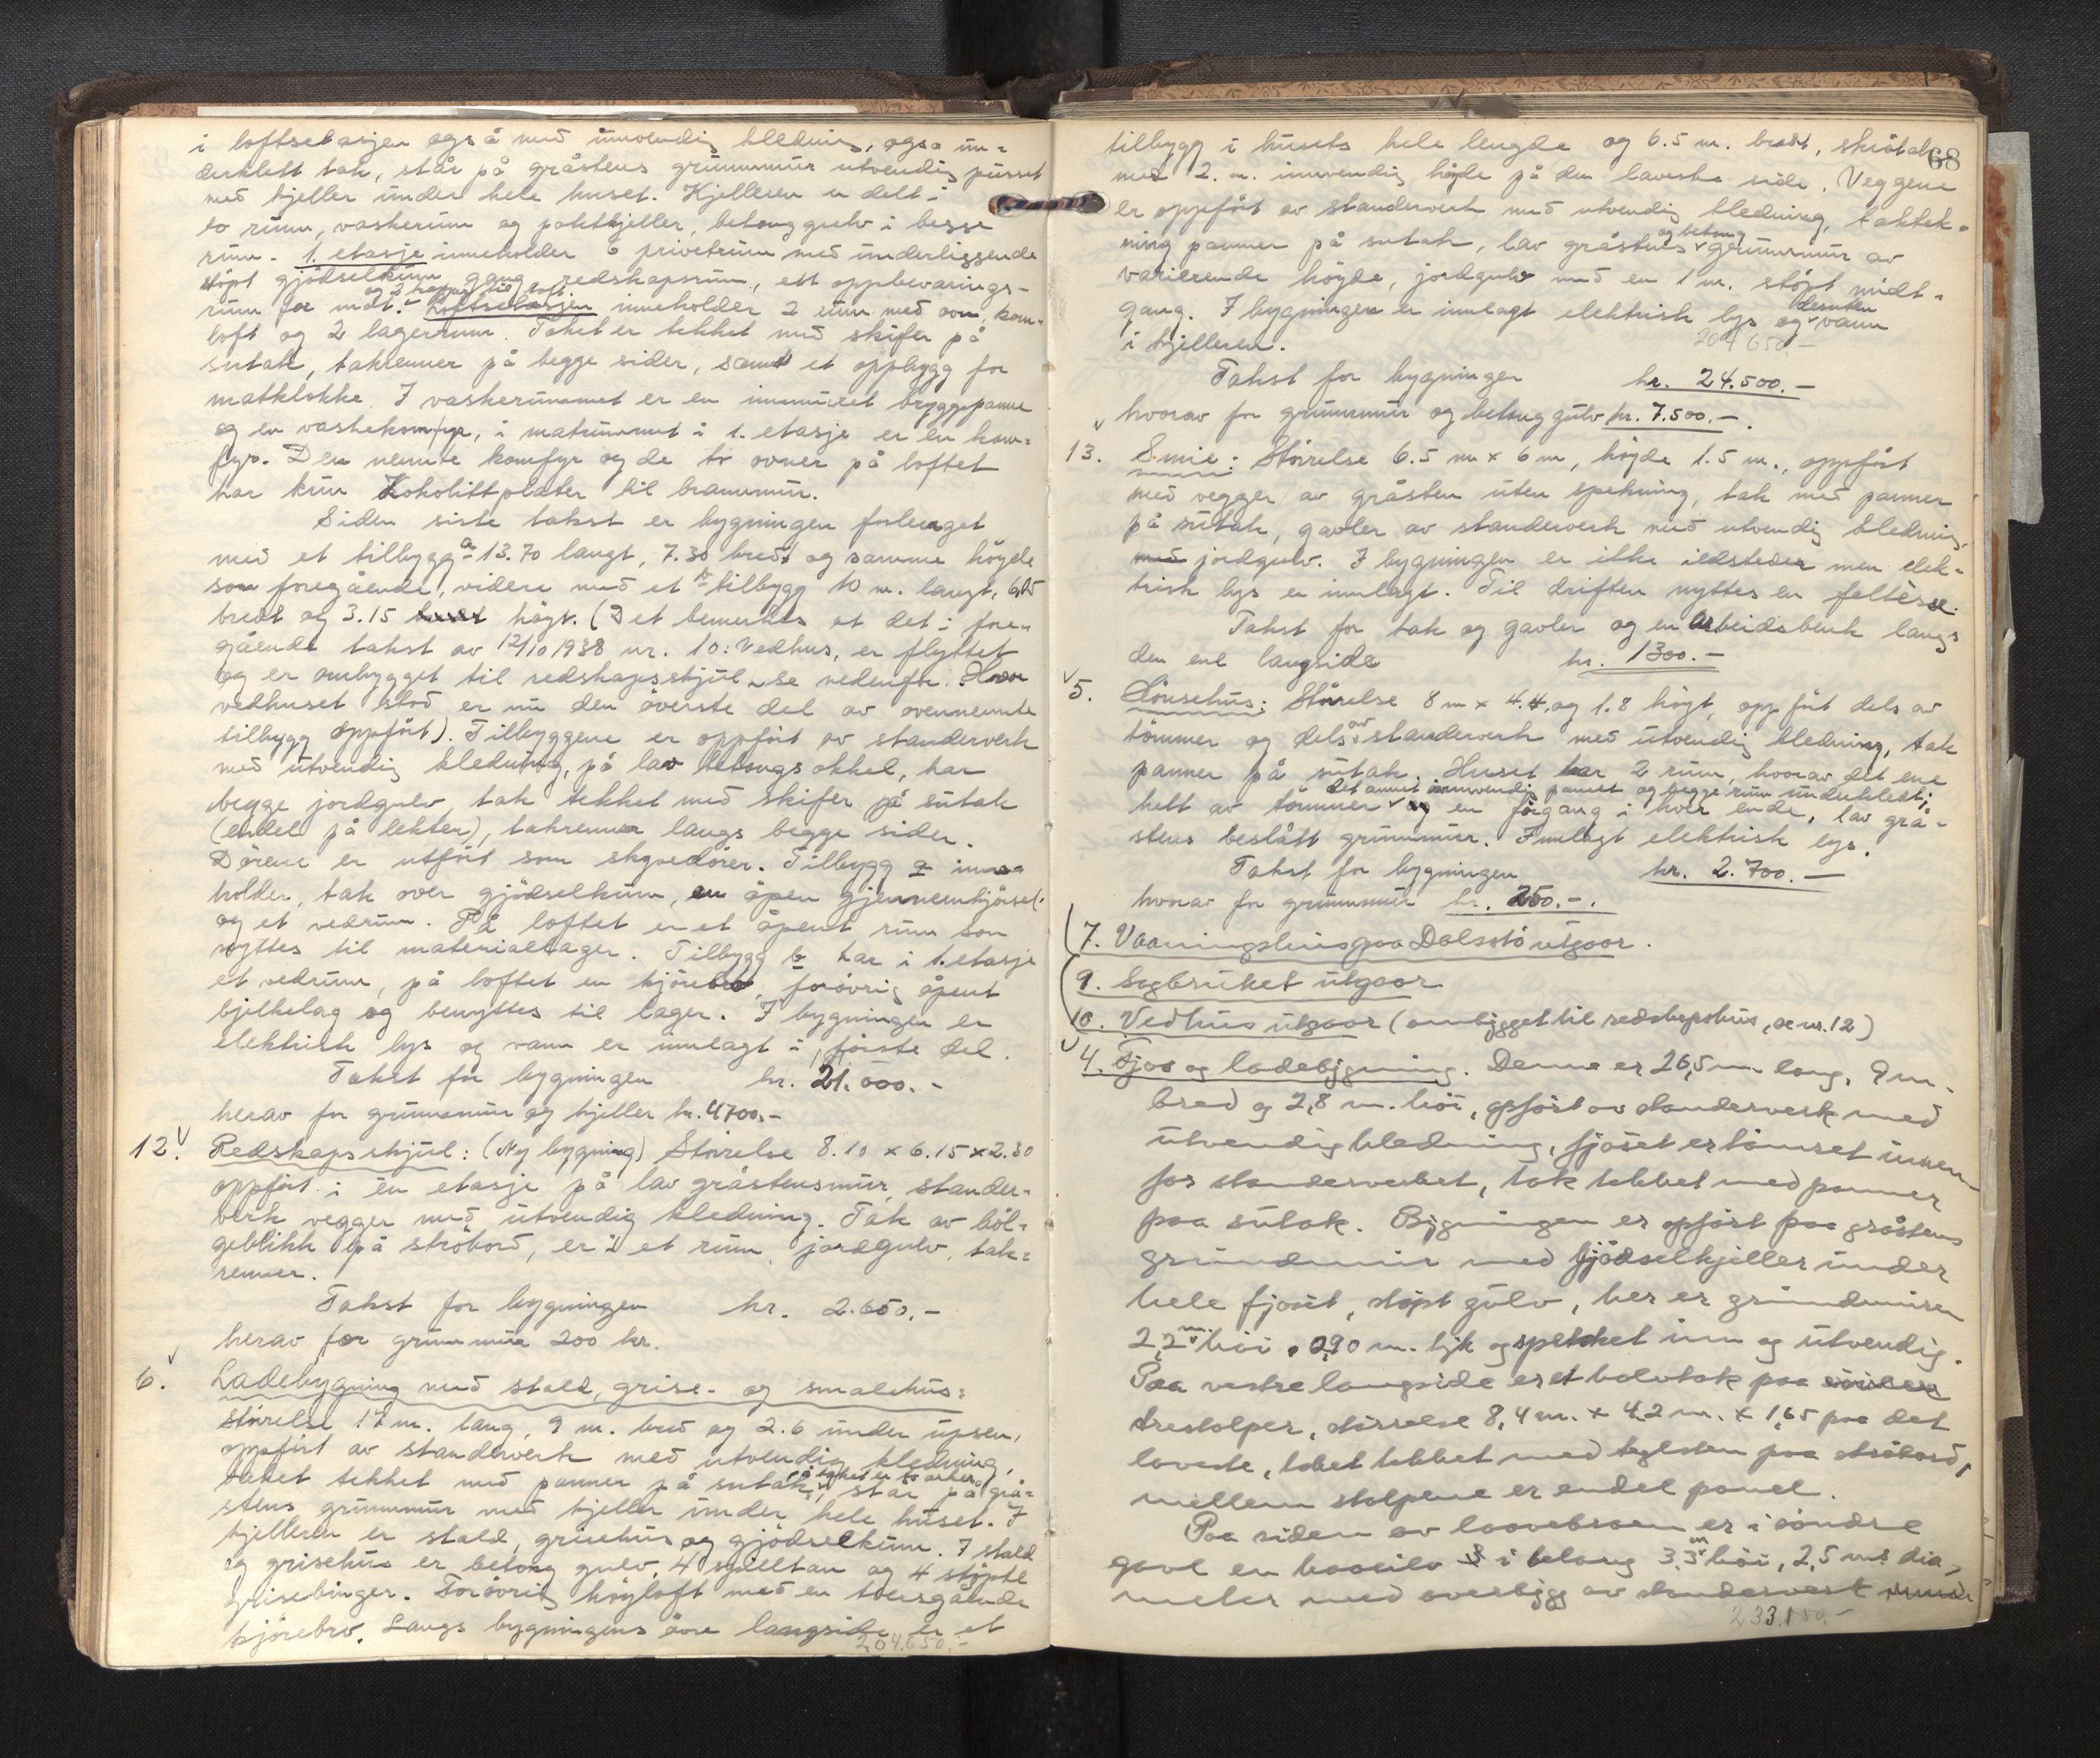 i loftsetasjen også med innvendig kledning, også un-
derklett tak, står på gråstens grunnmur utvendig pusset
med kjeller under hele huset. Kjelleren er delt i
to rum, vaskerum og potetkjeller, betonggulv i begge
rum. 1. etasje inneholder privetrum med underliggende
støpt gjødselkum, gang, redskapsrum, ett oppbevarings-
rum for mat. og 2 trapper til loft. Loftsetasjen inneholder 2 rum med ovn, kom-
loft og 2 lagerrum. Taket er tekket med skifer på
sutak, takrenner på begge sider, samt et oppbygg for
matklokke. I vaskerummet er en innmuret bryggepanne
og en vaskekomfyr, i matrummet i 1. etasje er en kom-
fyr. Den nevnte komfyr og de to ovner på loftet
har kun Kokolittplater til brannmur.
Siden siste takst er bygningen forlenget
med et tilbygg a 13.70 langt, 7.30 bredt og samme høyde
som foregående, videre med et b tilbygg 10 m. langt, 6.05
bredt og 3.15 høgt. (Det bemerkes at det i fore-
gående takst av 12/10 1938 nr. 10: Vedhus, er flyttet
og er ombygget til redskapsskjul, se nedenfor. Hvor
vedhuset stod er nu den øverste del av ovennevnte
tilbygg oppført). Tilbyggene er oppført av standerverk
med utvendig kledning, på lav betongsokkel, har
begge jordgulv, tak tekket med skifer på sutak
(endel på lekter), takrenner langs begge sider.
Dørene er utført som skyvedører. Tilbygg a inne-
holder, tak over gjødselkum, en åpen gjennemkjørsel
og et vedrum. På loftet er et åpent rum som
nyttes til materiallager. Tilbygg b har i 1. etasje
et vedrum, på loftet en kjørebro, forøvrig åpent
bjelkelag og benyttes til lager. I bygningen er
elektrisk lys og vann er innlagt i første del.
Takst for bygningen kr. 21.000.-
herav for grunnmur og kjeller kr. 4700.-
12. Redskapsskjul: (Ny bygning) Størelse 8.10 x 6.15 x 2.30
oppført i en etasje på lav gråstensmur, stander-
verk vegger med utvendig kledning. Tak av bøl-
geblikk på strøbord, er i et rum, jordgulv, tak-
renner.
Takst for bygningen kr. 2.650.-
herav for grunnmur 200 kr.
6. Ladebygning med stald, grise- og smalehus:
Størelse 17 m. lang, 9 m. bred og 2.6 under upsen,
oppført av standerverk med utvendig kledning,
taket tekket med panner på sutak, står på grå-
stens grunnmur med kjeller under hele huset. I
kjelleren er stald, grisehus og gjødselkum. I stald
og grisehus er betong gulv, 4 spilltau og 4 støpte
grisebinger. Forøvrig høyloft med en tversgående
kjørebro. Langs bygningens øvre langside er et
204.650.-
68
tilbygg i husets hele lengde og 6.5 m. bredt, skråtak
med 2. m. innvendig høyde på den laveste side. Veggene
er oppført av standerverk med utvendig kledning, taktek-
ning panner på sutak, lav gråstens og betong grunnmur av
varierende høyde, jordgulv med en 1 m. støpt midt-
gang. I bygningen er innlagt elektrisk lys og desuten vann
i kjelleren. 204 650.-
Takst for bygningen kr. 24.500.-
hvorav for grunnmur og betonggulv kr. 7.500.-.
13. Smie: Størrelse 6.5 m x 6 m, høyde 1.5 m., oppført
med vegger av gråsten uten spekning, tak med panner
på sutak, gavler av standerverk med utvendig kledning,
med jordgulv. I bygningen er ikke ildsteder men elek-
trisk lys er innlagt. Til driften nyttes en feltesse.
Takst for tak og gavler og en arbeidsbenk langs
den ene langside kr. 1300.-
5. Hønsehus: Størelse 8 m x 4.4, og 1.8 høgt, oppført dels av
tømmer og dels av standerverk med utvendig kledning, tak
panner på sutak. Huset har 2 rum, hvorav det ene
helt av tømmer det annet innvendig panelt og begge rum underklett; og en forgang i hver ende, lav grå-
stens beslått grunnmur. Innlagt elektrisk lys.
Takst for bygningen kr. 2.700.-
hvorav for grunnmur kr. 250.-.
7. Vaaningshus paa Dalsstø utgaar.
9. Sagbruket utgaar
10. Vedhus utgaar (ombygget til redskapshus, se nr. 12)
4. Fjos og ladebygning. Denne er 26,5 m. lang, 9 m.
bred og 2,8 m. høi, opført av standerverk med
utvendig kledning, fjøset er tømret innen
for standerverket, tak tekket med panner
paa sutak. Bygningen er opført paa gråstens
grundmur med gjødselkjeller under
hele fjøset, støpt gulv, her er grundmuren
2,2 m høi, 0,90 m. tyk og spekket inn og utvendig.
Paa vestre langside er et halvtak paa
trestolper, størrelse 8,4 m. x 4,2 m. x 1,65 paa det
laveste, taket tekket med teglsten paa strøbord,
mellem stolpene er endel panel.
Paa siden av laavebroen er i søndre
gavl en høosilo i betong 3.3 m høi, 2,5 m. dia-
meter med overbygg av standerverk
233.150.-